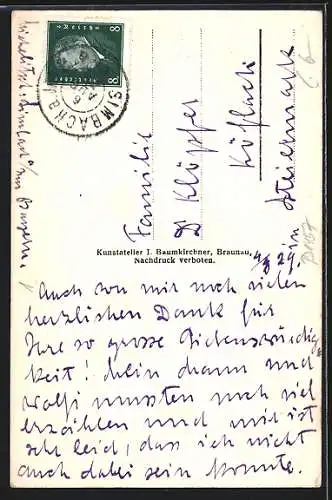 SIMBACH
8
8
Familie
Dr Klöpfer
Köflach
in Steiermark
Kunstatelier I. Baumkirchner, Braunau,
Nachdruck verboten.
29.
Auch von mir noch vielen
herzlichen Dank für
Ihre so grosse Liebenswürdig
keit! Mein Mann und
Wolfi mussten noch viel
erzählen und mir ist
sehr leid, dass ich nicht
auch dabei sein konnte.